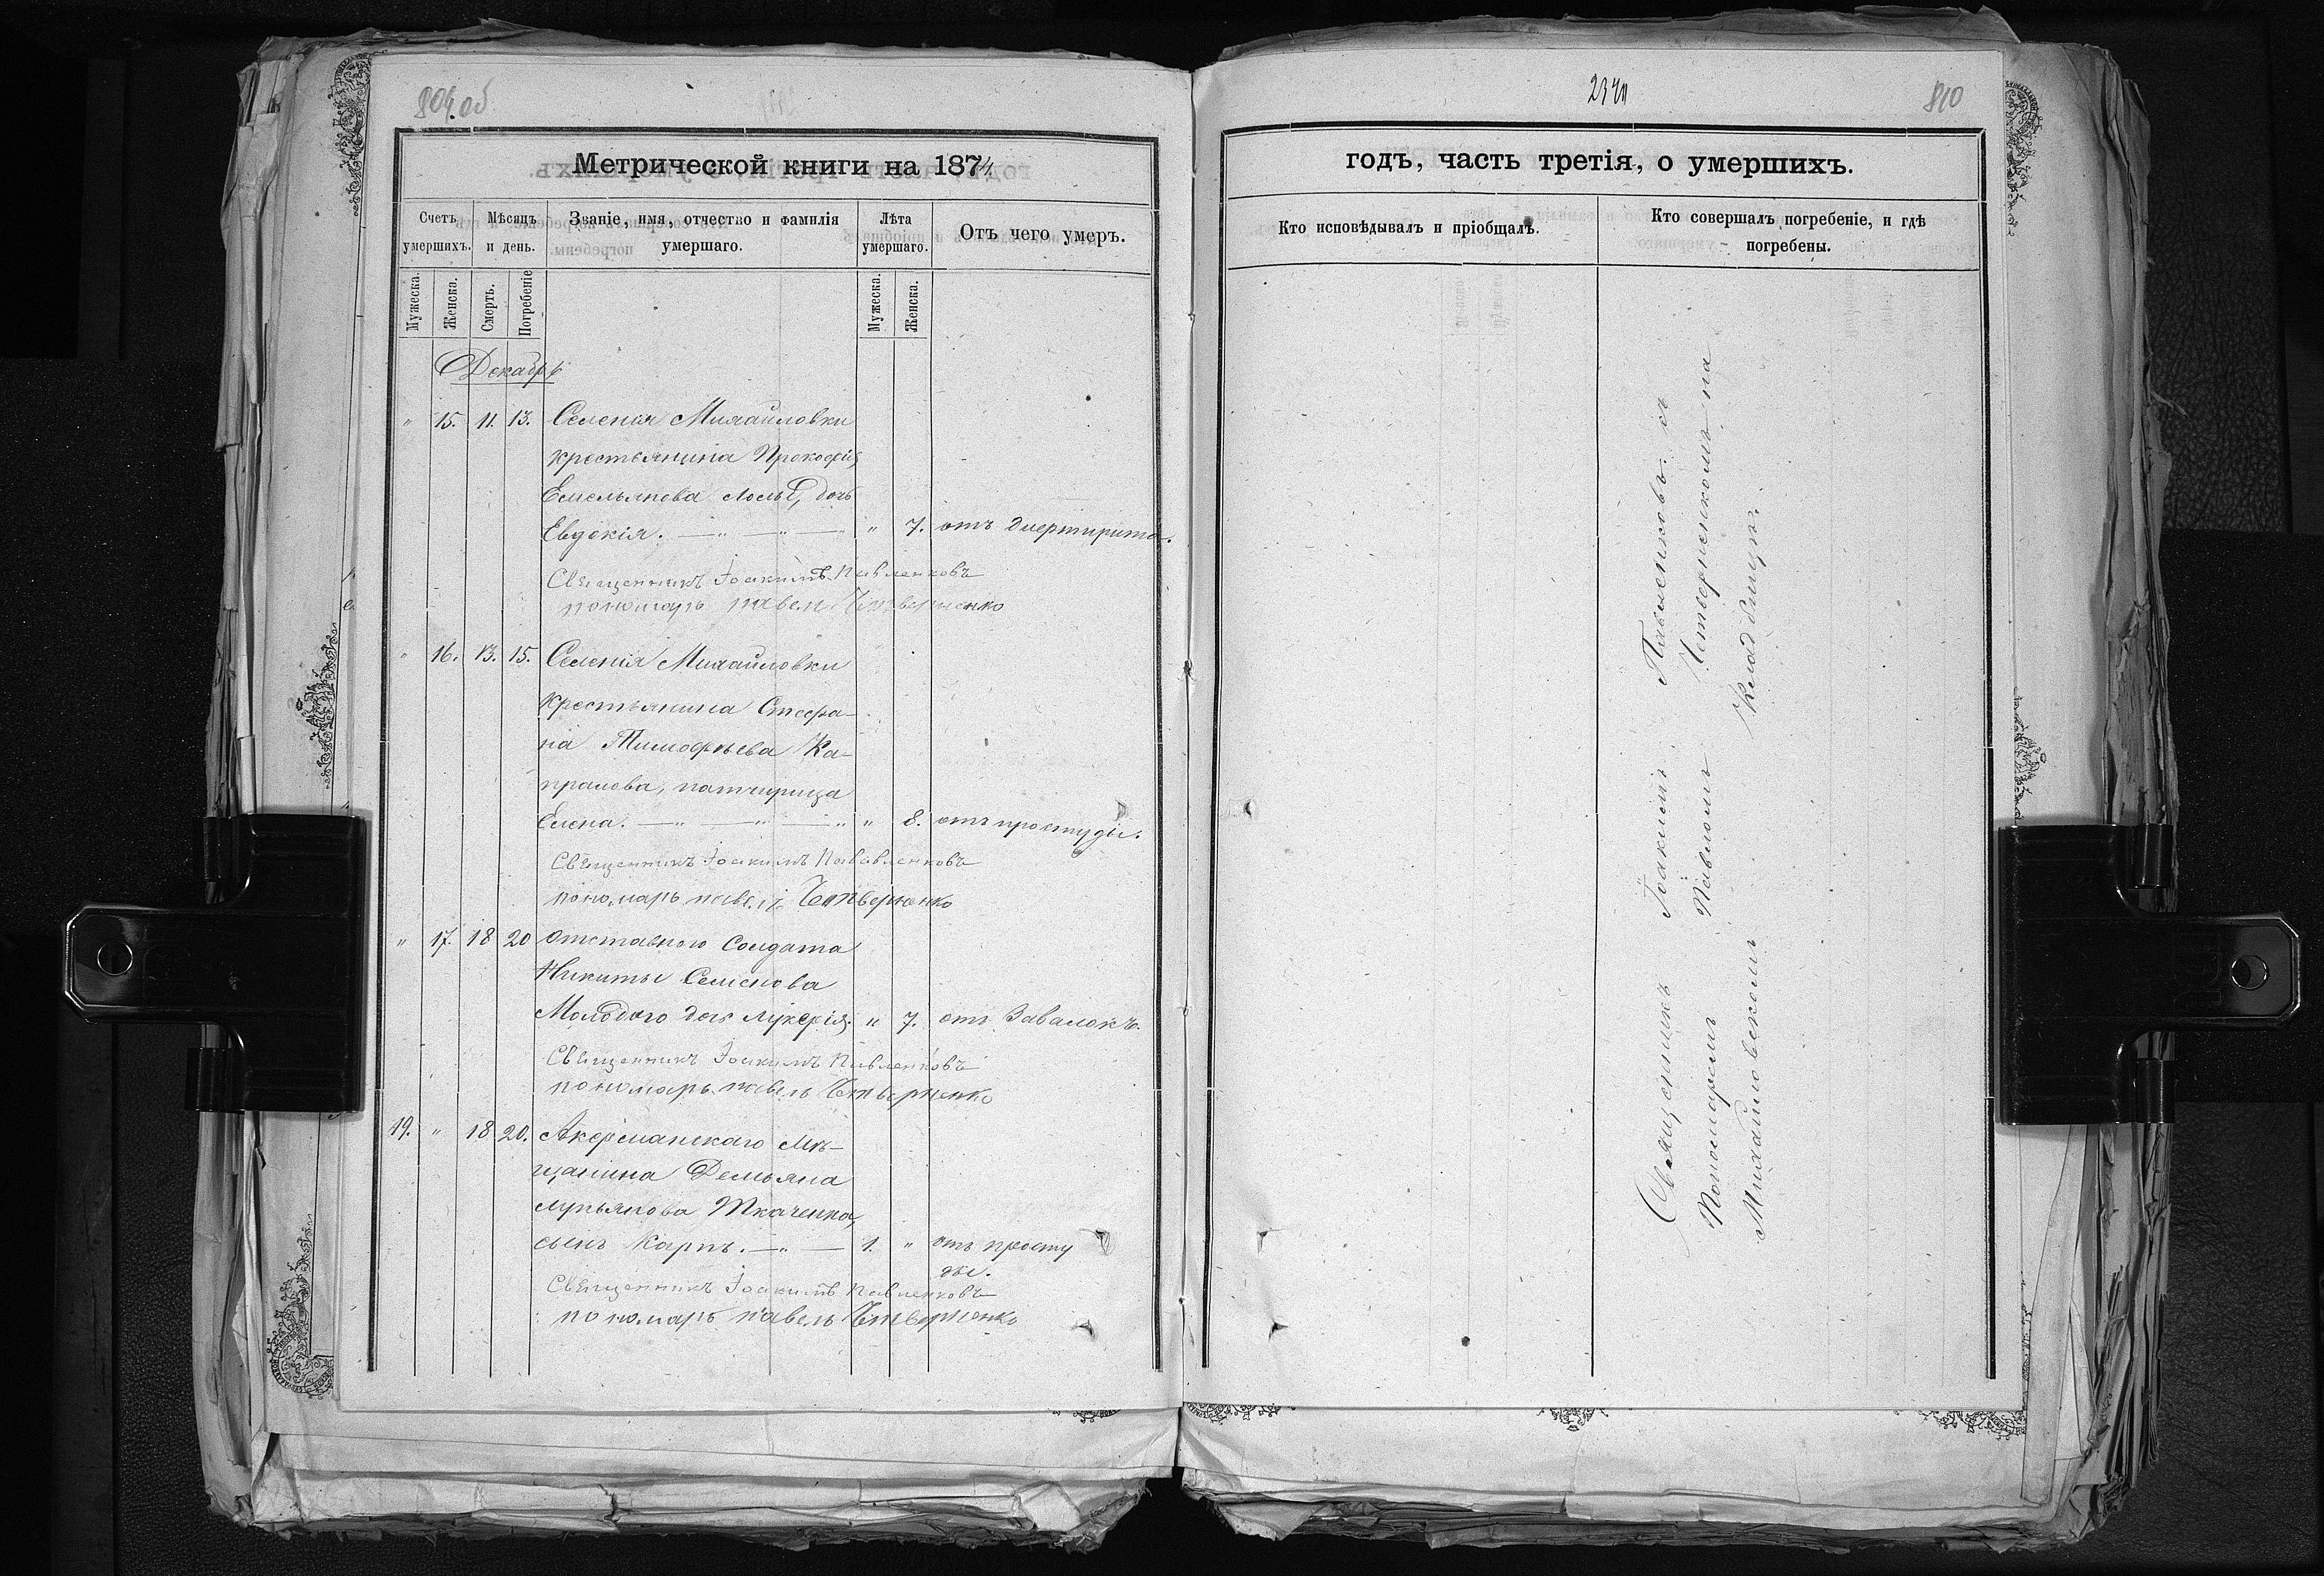 804.об
Метрической книги на 1874
Счетъ умершихъ.
Мѣсяцъ и день.
Званіе, имя, отчество и фамилія умершаго.
Лѣта умершаго.
Отъ чего умеръ.
Мужеска.
Женска.
Смерть.
Погребеніе
Мужеска.
Женска.
Декабрь
" 15. 11. 13. Селенія Михайловки
крестьянина Прокофія
Емельянова дочь
Евдокія. — " — " — " 7. отъ диертирита.
Священникъ Іоакимъ Павленковъ
пономарь павелъ Четверненко
" 16. 13. 15. Селенія Михайловки
крестьянина Стефа-
на Тимофѣева Ка-
пралова, патчирица
Елена. — " — " — " " 8. отъ простуды.
Священникъ Іоакимъ Пававленковъ
пономарь павелъ Четверненко
" 17. 18 20 Отставного Солдата
Никиты Семенова
Молодого дочь Лукерія. " 7. отъ Завалокъ.
Священникъ Іоакимъ Павленковъ
пономарь павелъ Четверненко
19. " 18 20. Аккерманскаго мѣ-
щанина Демьяна
Лукьянова Ткаченка,
сынъ Карпъ. — " — 1. " отъ просту
ды.
Священникъ Іоакимъ Павленковъ
пономарь павелъ Четверненко
810
годъ, часть третія, о умершихъ.
Кто исповѣдывалъ и пріобщалъ.
Кто совершалъ погребеніе, и гдѣ погребены.
Священникъ Іоакимъ Павленковъ съ
Пономаремъ Павломъ Четверненкомъ на
Михайловскомъ Кладбищѣ.